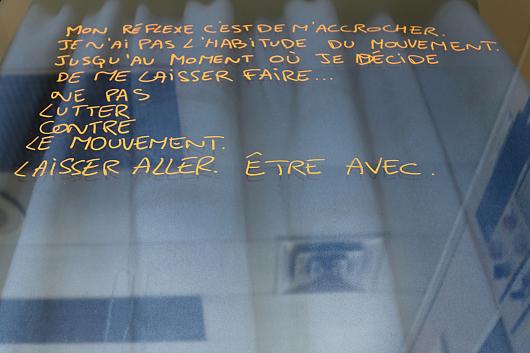 MON RÉFLEXE C'EST DE M'ACCROCHER.
JE N'AI PAS L'HABITUDE DU MOUVEMENT.
JUSQU'AU MOMENT OÙ JE DÉCIDE
DE ME LAISSER FAIRE...
NE PAS
LUTTER
CONTRE
LE MOUVEMENT.
LAISSER ALLER. ÊTRE AVEC.